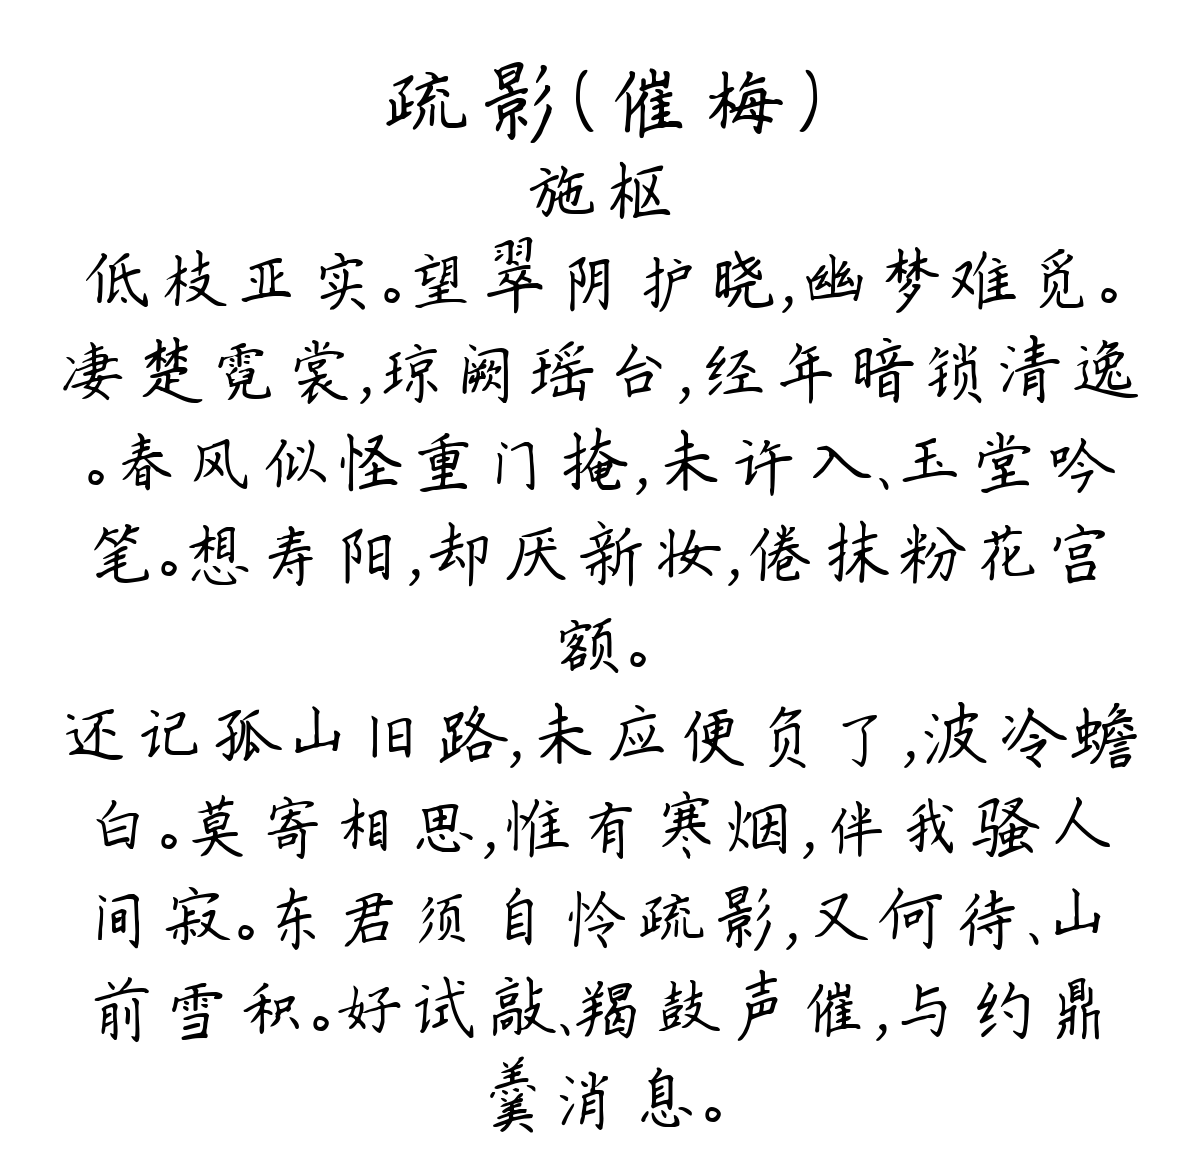 疏影(催梅)
施枢
低枝亚实。望翠阴护晓,幽梦难觅。
凄楚霓裳,琼阙瑶台,经年暗锁清逸
。春风似怪重门掩,未许入、玉堂吟
笔。想寿阳,却厌新妆,倦抹粉花宫
额。
还记孤山旧路,未应便负了,波冷蟾
白。莫寄相思,惟有寒烟,伴我骚人
间寂。东君须自怜疏影,又何待、山
前雪积。好试敲、羯鼓声催,与约鼎
羹消息。